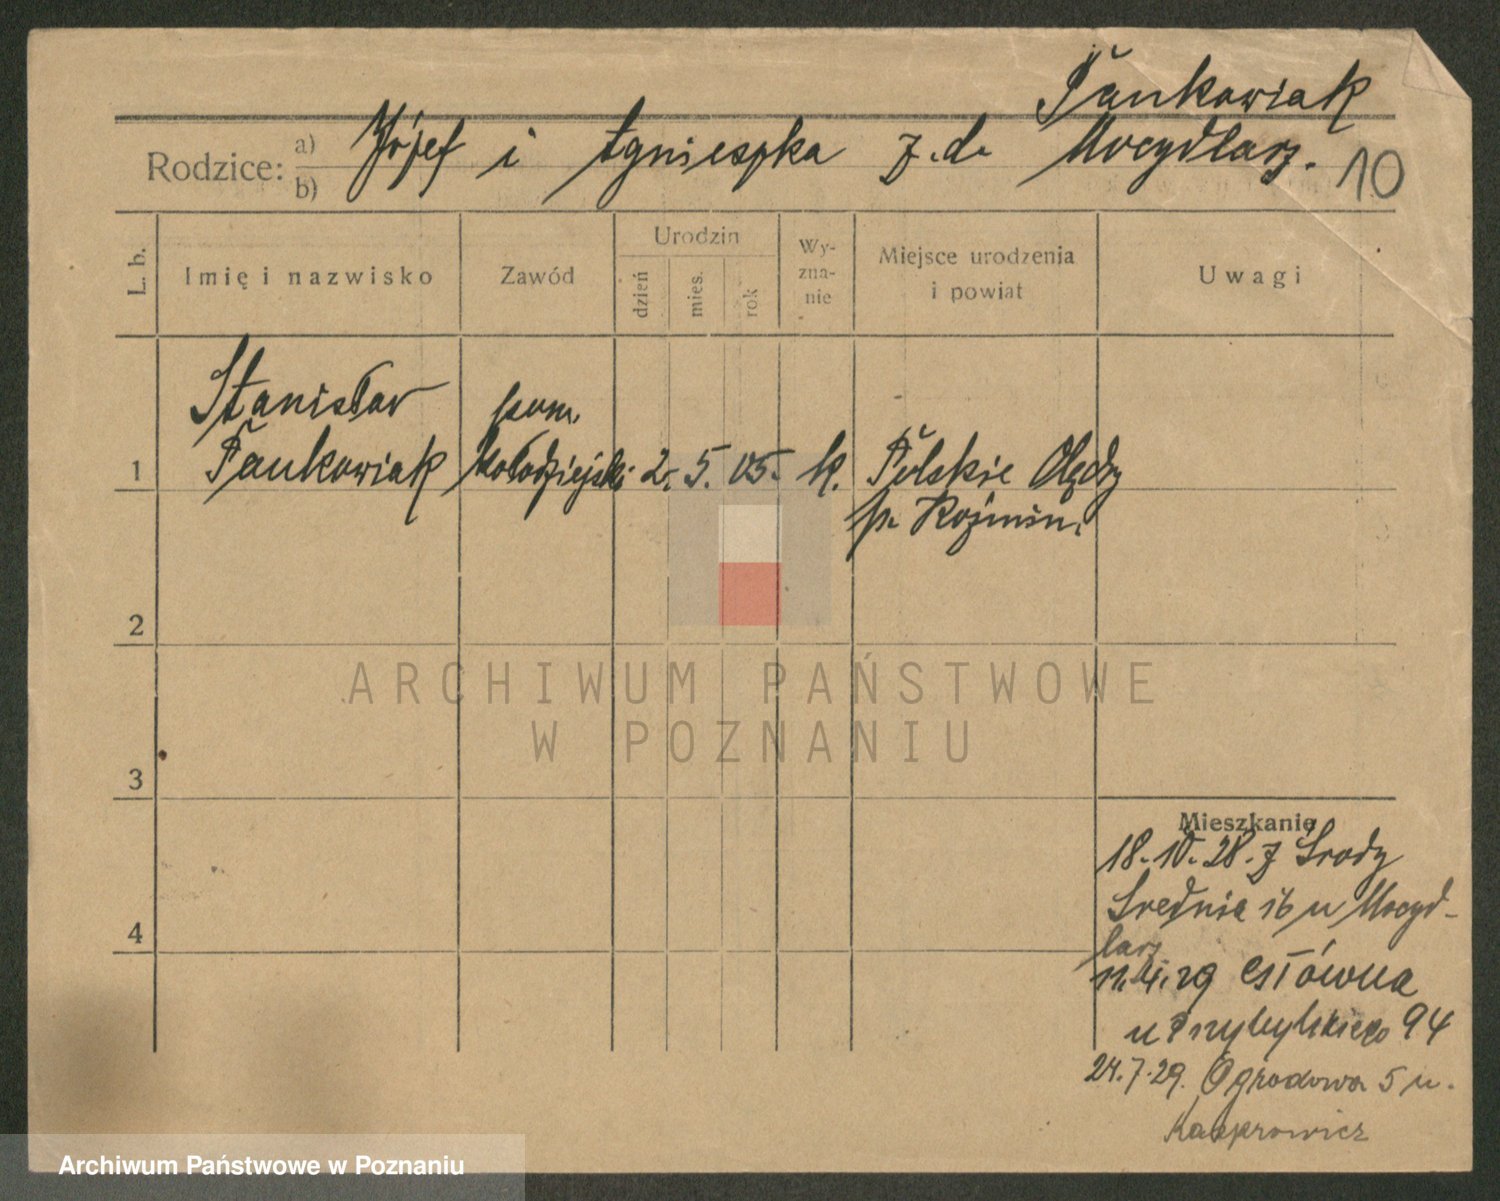 Pankowiak
Rodzice: a) b) Józef i Agnieszka z. d. Mocydlarz. 10
L. b.
Imię i nazwisko
Zawód
Urodzin
dzień
mies.
rok
Wy-
zna-
nie
Miejsce urodzenia
i powiat
Uwagi
Stanisław pom.
1 Pankowiak kołodziejski 2. 5. 05. k. Polskie Olędry
p. Koźmin.
2
3
4
Mieszkanie
18.10.28. z Środy
Średnia 16 u Mocyd-
larz
11.4.29 Główna
u Przybylskiego 94
24.7.29. Ogrodowa 5 u.
Kasprowicz
ARCHIWUM PAŃSTWOWE
W POZNANIU
Archiwum Państwowe w Poznaniu